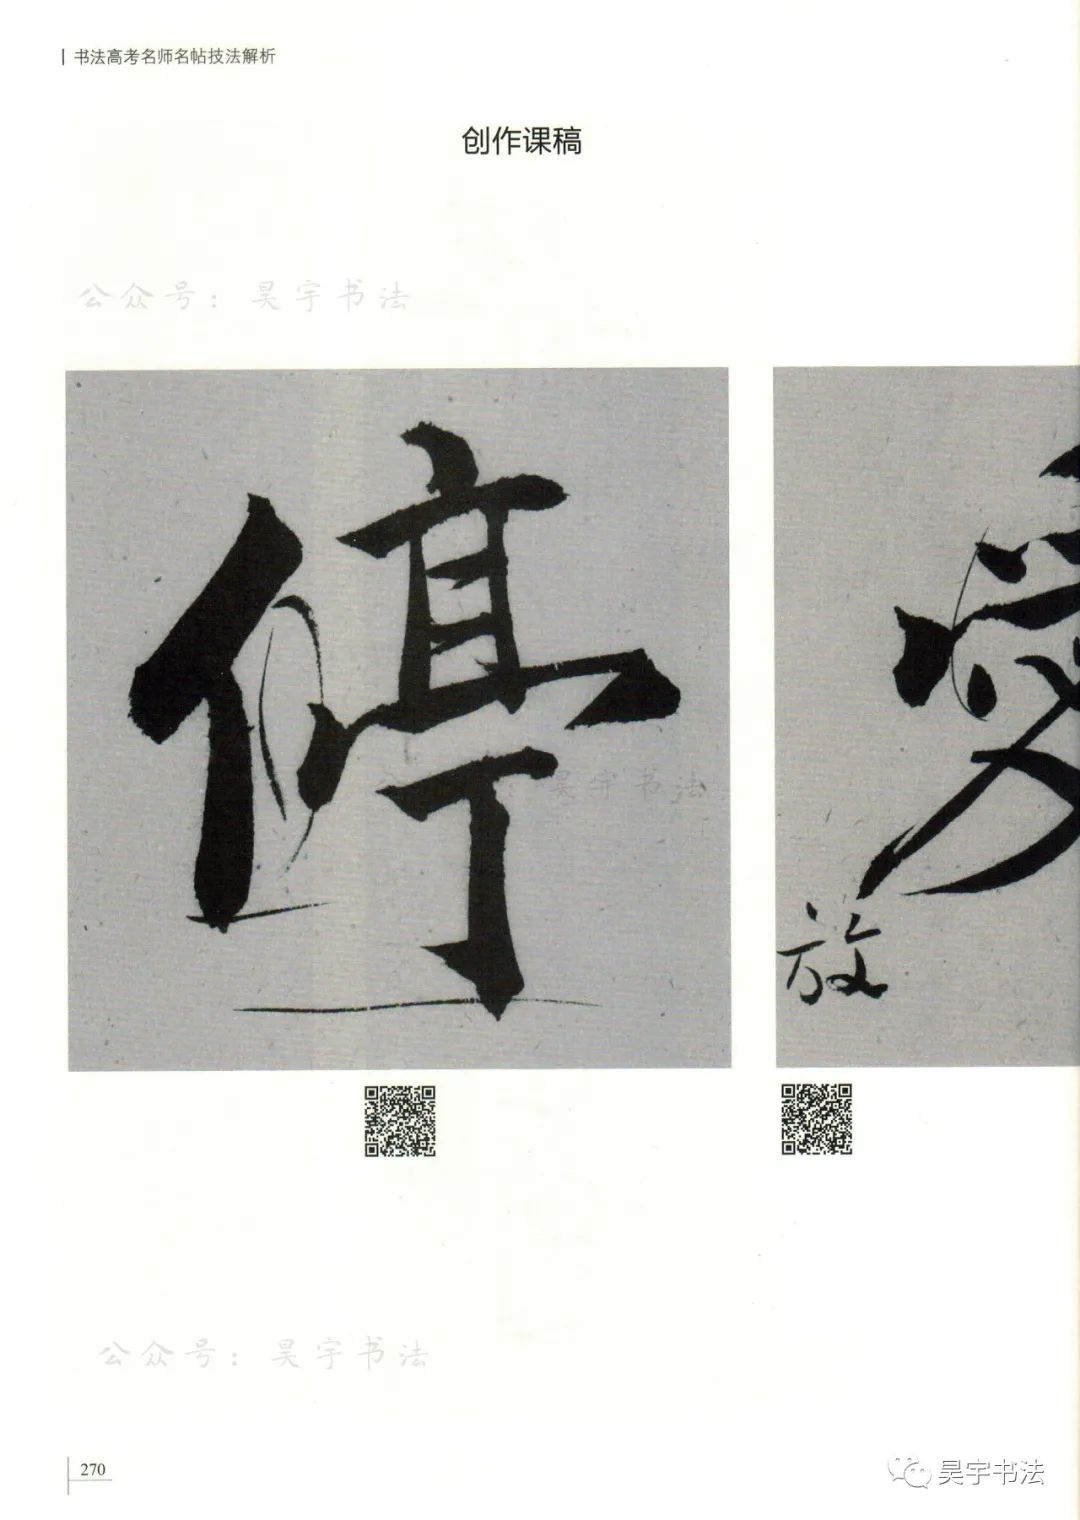 书法高考名师名帖技法解析
创作课稿
公众号：昊宇书法
停
爱
放
昊宇书法
公众号：昊宇书法
270
昊宇书法